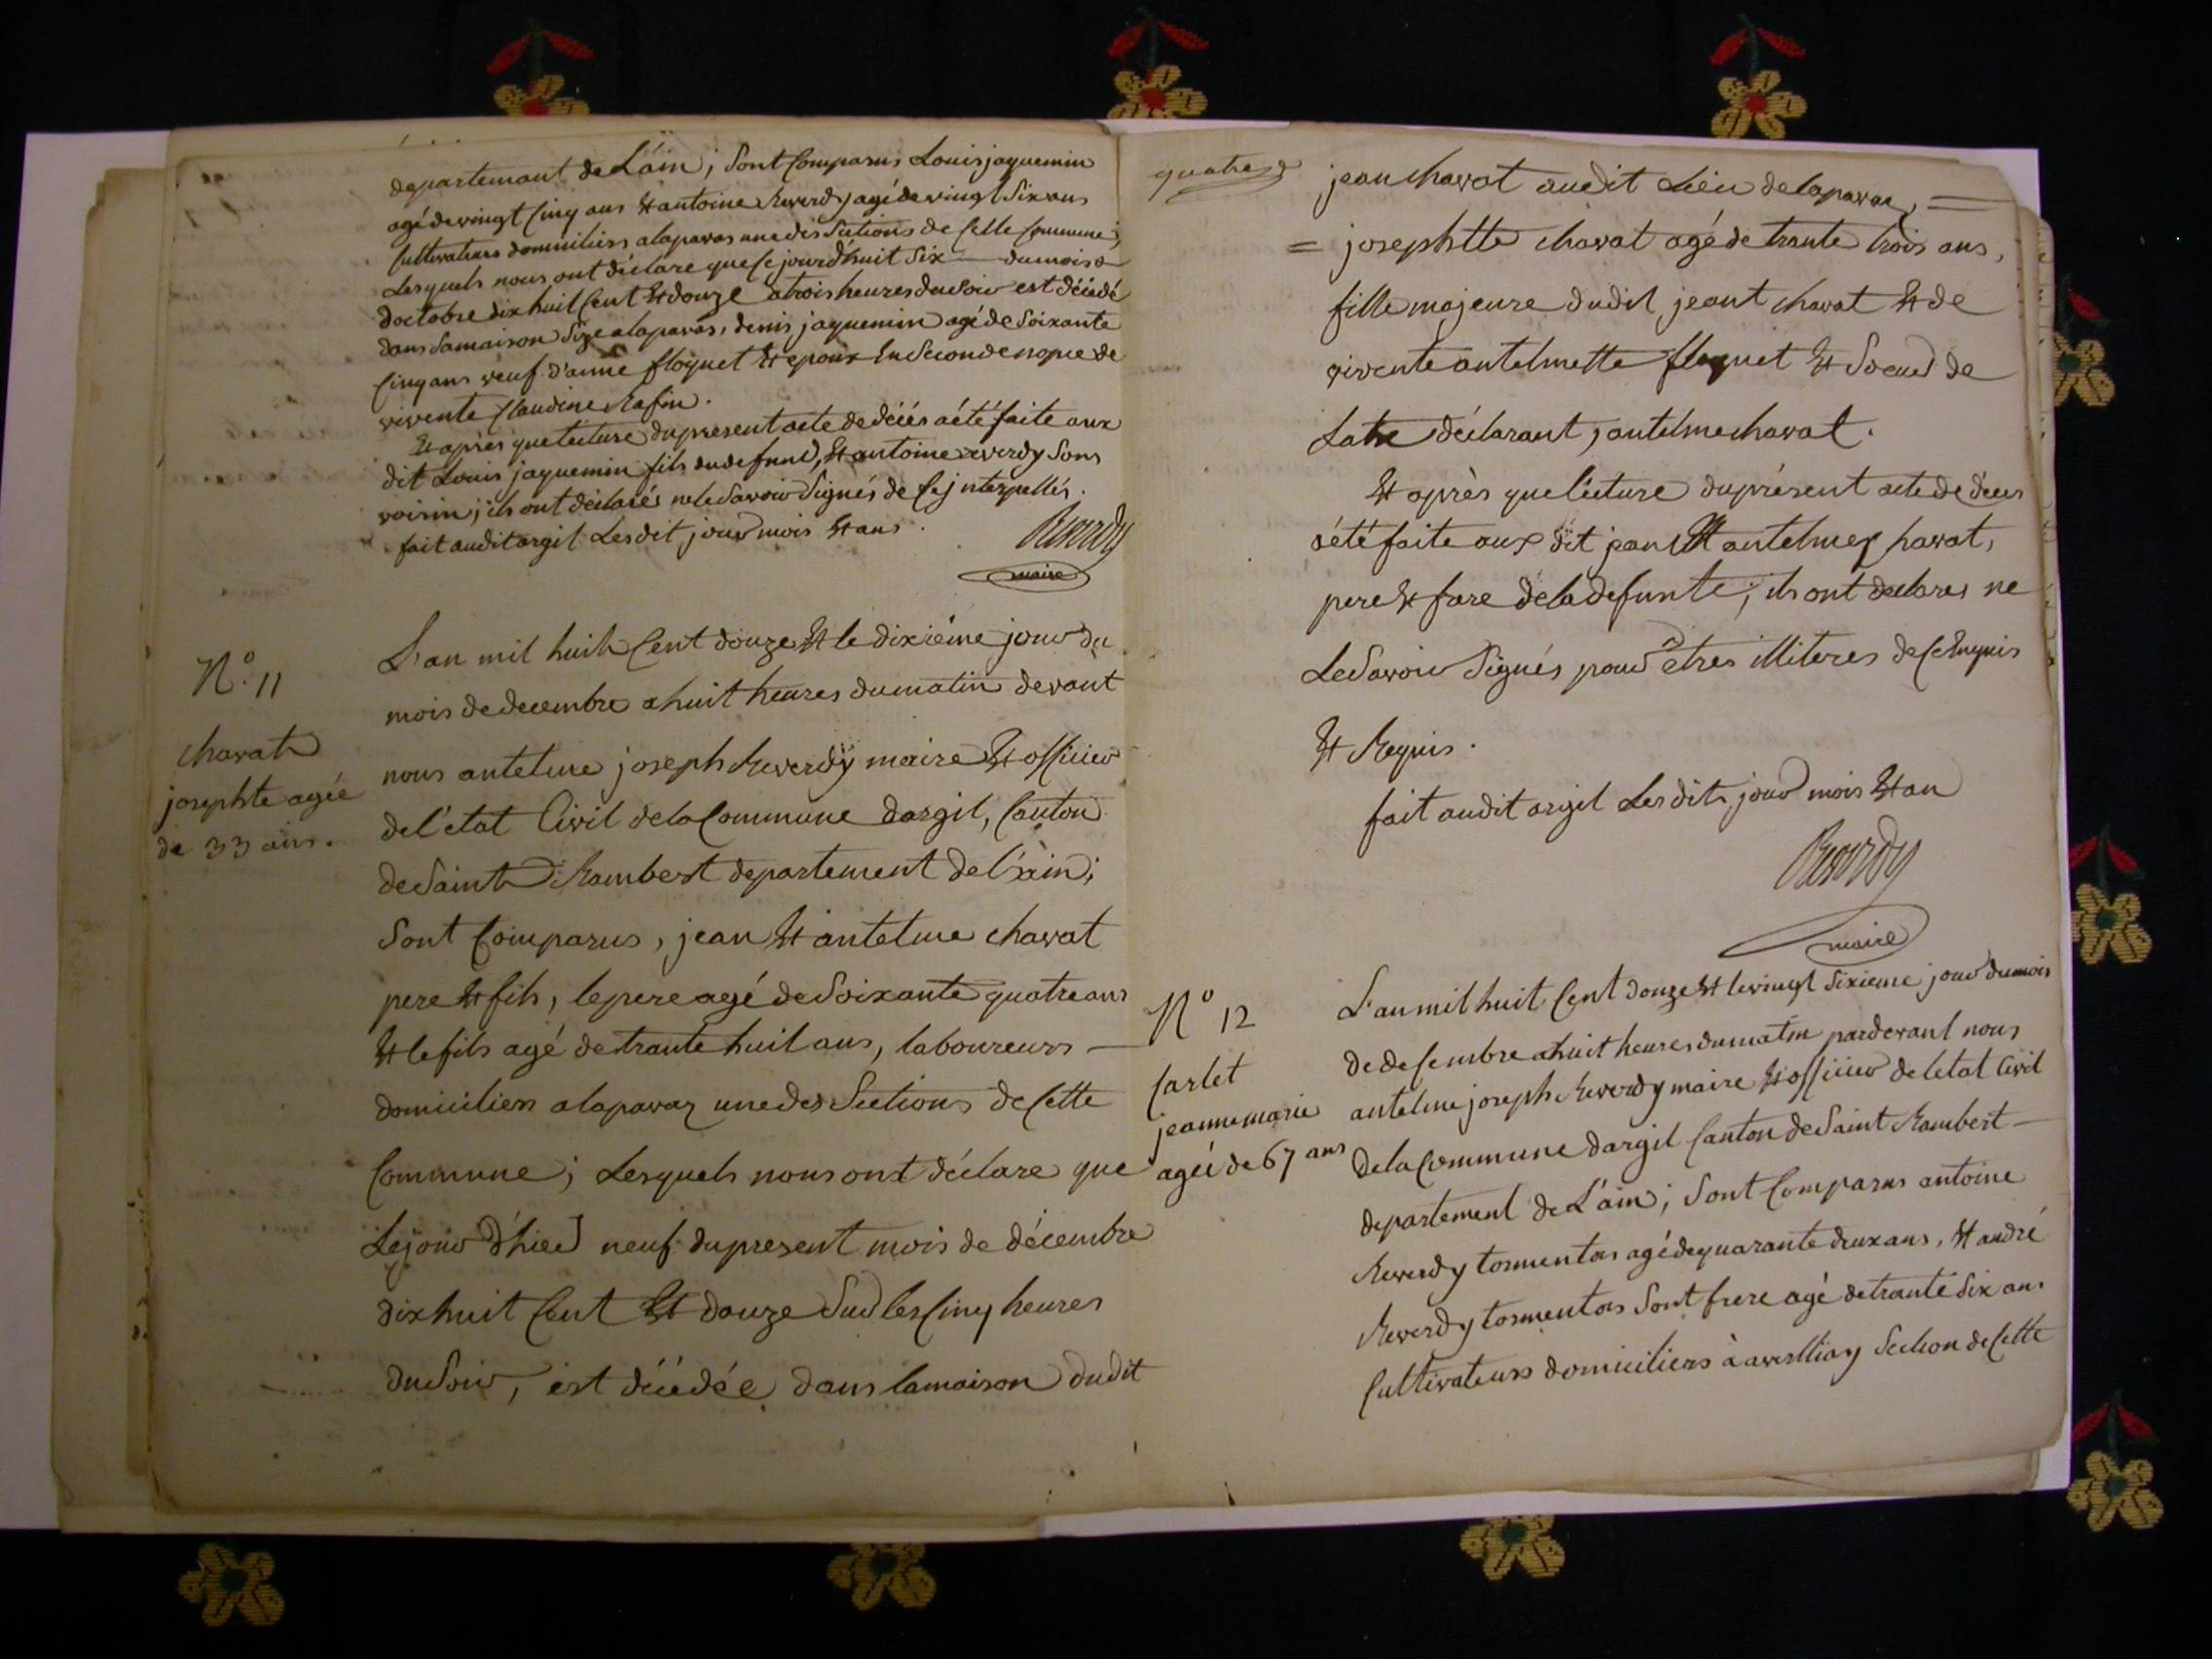 departemant de L'ain; Sont Comparus, Louis jaquemin
agé de vingt Cinq ans Et antoine Reverdy agé de vingt Six ans
Cultivateurs domiciliers alaparas une des Sections de Cette Commune,
Lesquels nous ont déclare que Ce jourd'huit Six — du mois
doctobre dix huit Cent Et douze atrois heures du Soir est décédé
dans Samaison Size alaparas, denis jaquemin agé de Soixante
Cinq ans veuf d'anne floquet Et epoux En Seconde nopce de
vivente Claudine Rafin.
Et après que lecture du present acte de décés a été faite aux
dit Louis jaquemin fils du defund, Et antoine reverdy Sons
voisin; ils ont déclarés ne le Savoir Signés de Ce jnterpellés.
fait audit argil Lesdit jour mois Et ans.
Reverdy
maire
N.o 11
chavat
josephte agée
de 33 ans.
L'an mil huit Cent douze Et le dixiéme jour du
mois de decembre a huit heures du matin devant
nous antelme joseph Reverdÿ maire Et officier
de l'etat Civil de la Commune dargil, Canton
de Saint Rambert departement de l'ain;
Sont Comparus, jean Et antelme chavat
pere Et fils, le pere agé de Soixante quatre ans
Et le fils agé de trante huit ans, laboureurs —
domiciliers alaparaz une des Sections de Cette
Commune; Lesquels nous ont déclare que
Le jour d'hier neuf du present mois de décembre
dix huit Cent Et douze Sur les Cinq heures
du Soir, est décédée dans la maison dudit
quatre
jean chavat audit Lieu de laparaz, =
= josephtte chavat agé de trante trois ans,
fille majeure dudit jeant chavat Et de
vivente antelmette floquet Et Soeur de
Latre déclarant, antelme chavat.
Et après que lécture du présent acte de déces
a été faite aux dit jean Et antelme chavat,
pere Et frere de la defunte; ils ont declares ne
Le Savoir Signés pour etres illiteres de Ce Enquis
Et Requis.
fait audit argil Lesdit jour mois Et an
Reverdy
maire
N.o 12
Carlet
jeanne marie
agée de 67 ans
L'an mil huit Cent douze Et le vingt Sixieme jour du mois
de deCembre a huit heures du matin pardevant nous
antelme joseph Reverdy maire Et officier de letat Civil
de la Commune dargil Canton de Saint Rambert —
departement de L'ain; Sont Comparus antoine
Reverdy tormentas agé de quarante deux ans, Et andré
Reverdy tormentas Sont frere agé de trante Six ans
Cultivateurs domiciliers à averlliay Section de Cette